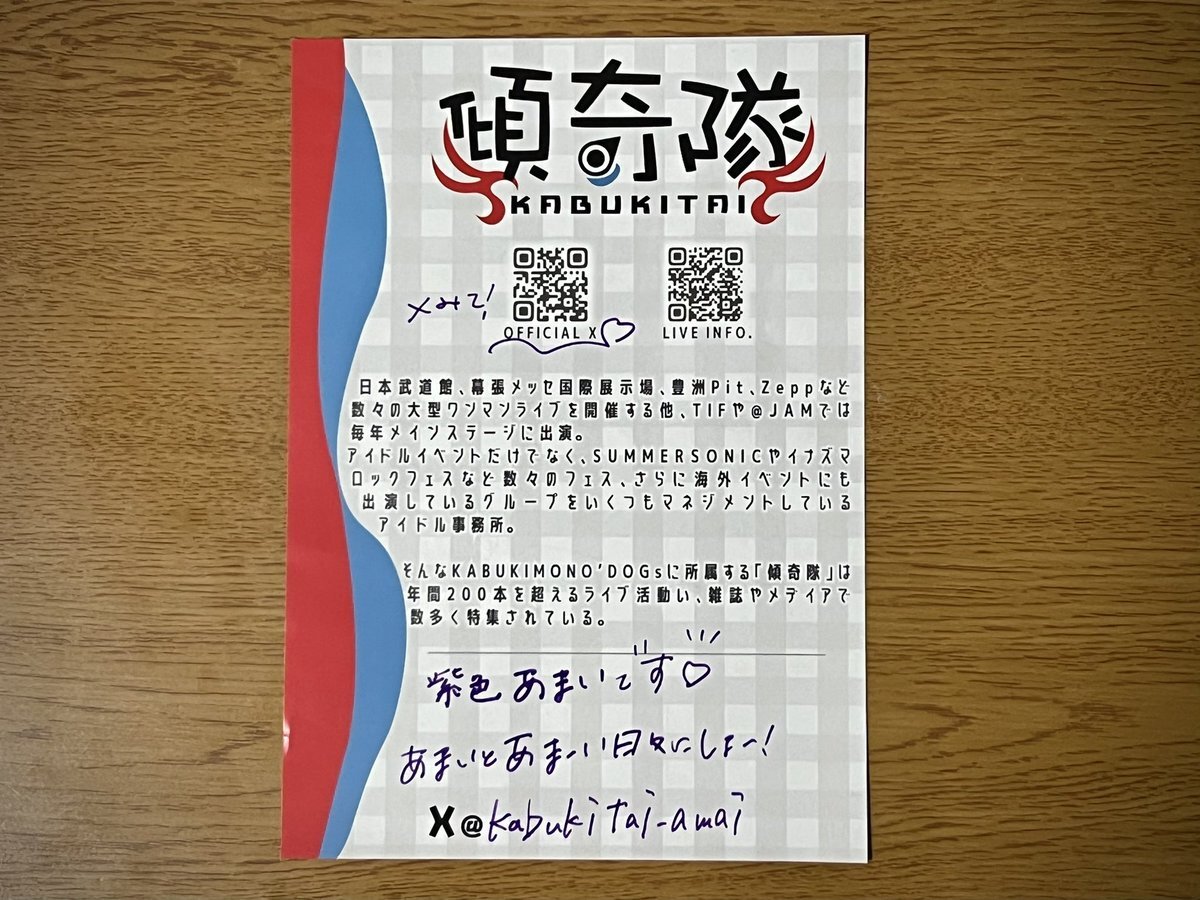 傾奇隊
KABUKITAI
Xみて!
OFFICIAL X
LIVE INFO.
日本武道館、幕張メッセ国際展示場、豊洲Pit、Zeppなど
数々の大型ワンマンライブを開催する他、TIFや@JAMでは
毎年メインステージに出演。
アイドルイベントだけでなく、SUMMERSONICやイナズマ
ロックフェスなど数々のフェス、さらに海外イベントにも
出演しているグループをいくつもマネジメントしている
アイドル事務所。
そんなKABUKIMONO'DOGsに所属する「傾奇隊」は
年間200本を超えるライブ活動い、雑誌やメディアで
数多く特集されている。
紫色 あまいです♡
あまいとあまーい日々にしよー!
X@kabukitai_amai